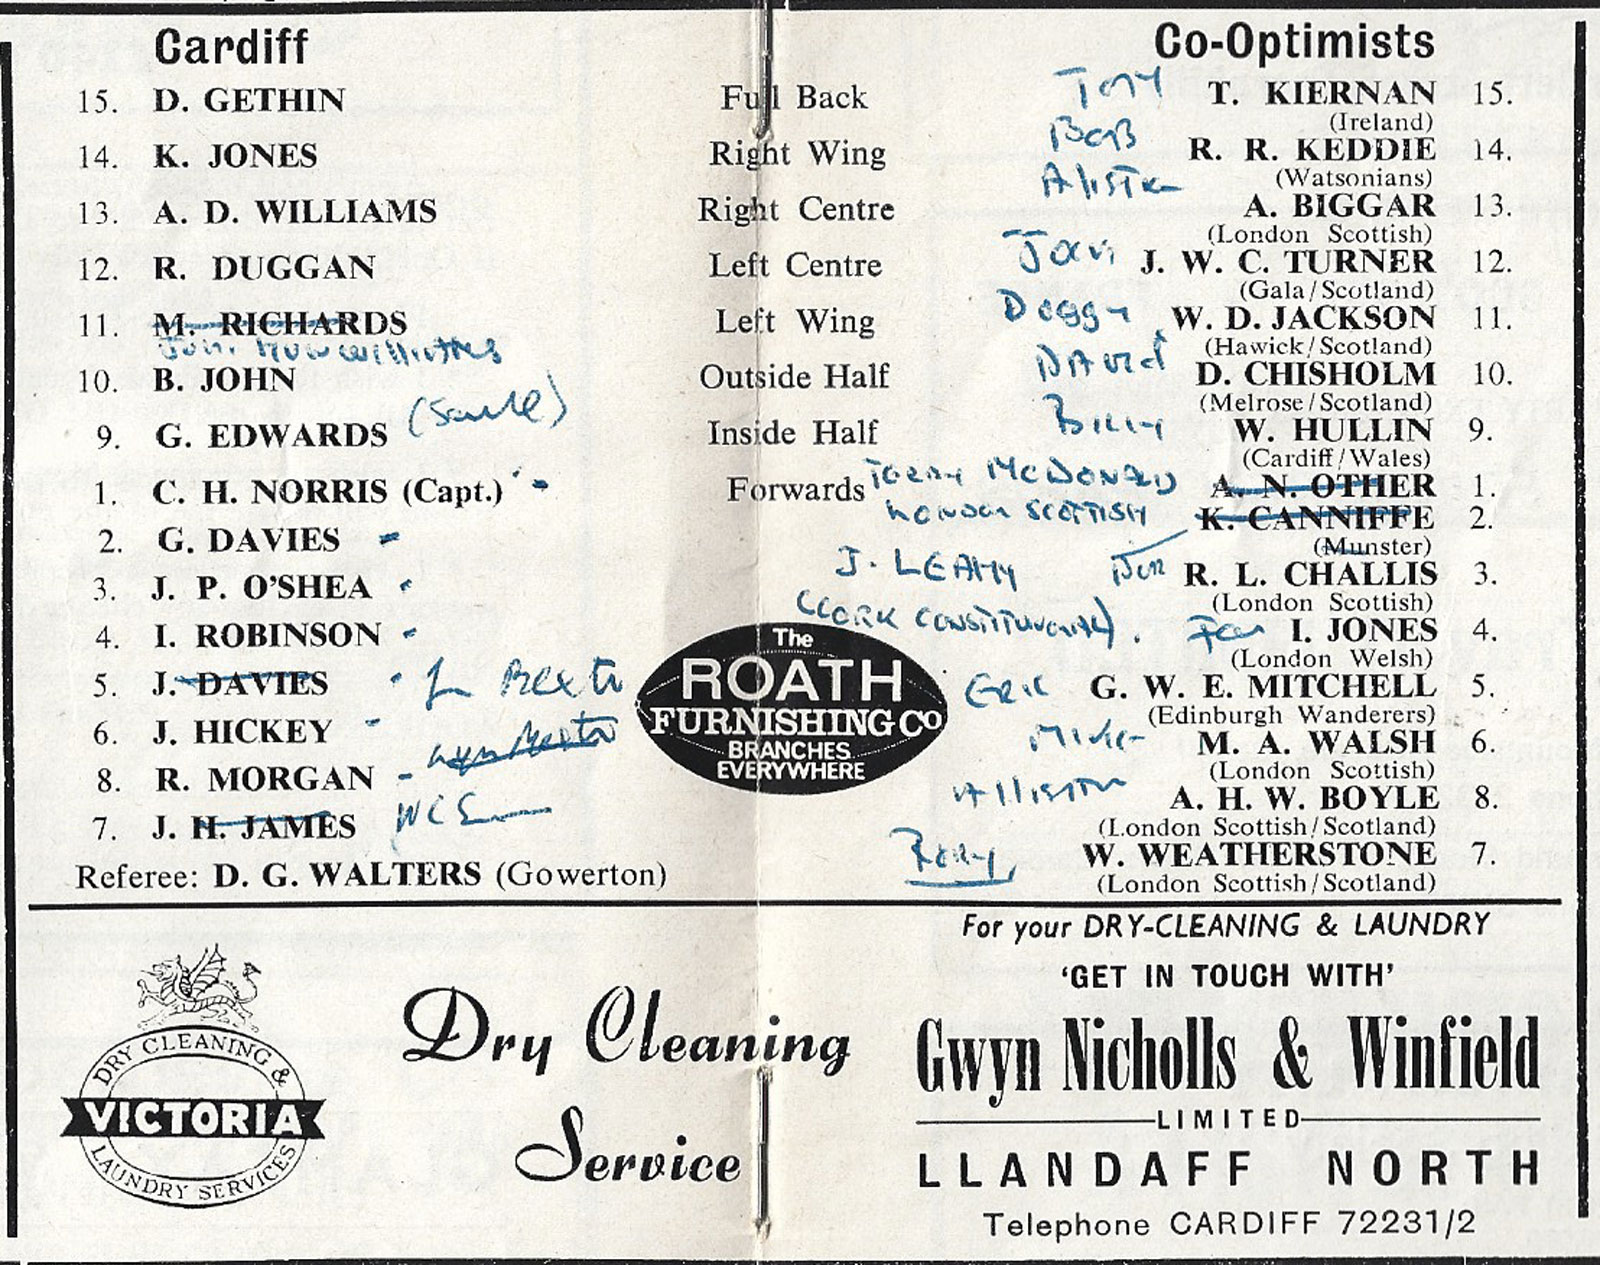 Cardiff Co-Optimists
15. D. GETHIN Full Back Tony T. KIERNAN 15.
(Ireland)
14. K. JONES Right Wing BOB R. R. KEDDIE 14.
(Watsonians)
13. A. D. WILLIAMS Right Centre A. BIGGAR 13.
(London Scottish)
12. R. DUGGAN Left Centre J. W. C. TURNER 12.
(Gala/Scotland)
11. M. RICHARDS Left Wing W. D. JACKSON 11.
(Hawick/Scotland)
10. B. JOHN Outside Half DAVID D. CHISHOLM 10.
(Melrose/Scotland)
9. G. EDWARDS Inside Half Billy W. HULLIN 9.
(Cardiff/Wales)
1. C. H. NORRIS (Capt.) Forwards TERRY McDONALD A. N. OTHER 1.
LONDON SCOTTISH K. CANNIFFE 2.
(Munster)
2. G. DAVIES
3. J. P. O'SHEA J. LEAHY R. L. CHALLIS 3.
(London Scottish)
4. I. ROBINSON (CORK CONSTITUTIONAL). I. JONES 4.
(London Welsh)
5. J. DAVIES ERIC G. W. E. MITCHELL 5.
(Edinburgh Wanderers)
6. J. HICKEY Mike M. A. WALSH 6.
(London Scottish)
8. R. MORGAN A. H. W. BOYLE 8.
(London Scottish/Scotland)
7. J. H. JAMES Rory W. WEATHERSTONE 7.
(London Scottish/Scotland)
The
ROATH
FURNISHING Co
BRANCHES
EVERYWHERE
Referee: D. G. WALTERS (Gowerton)
DRY CLEANING &
VICTORIA
LAUNDRY SERVICES
Dry Cleaning
Service
For your DRY-CLEANING & LAUNDRY
'GET IN TOUCH WITH'
Gwyn Nicholls & Winfield
LIMITED
LLANDAFF NORTH
Telephone CARDIFF 72231/2